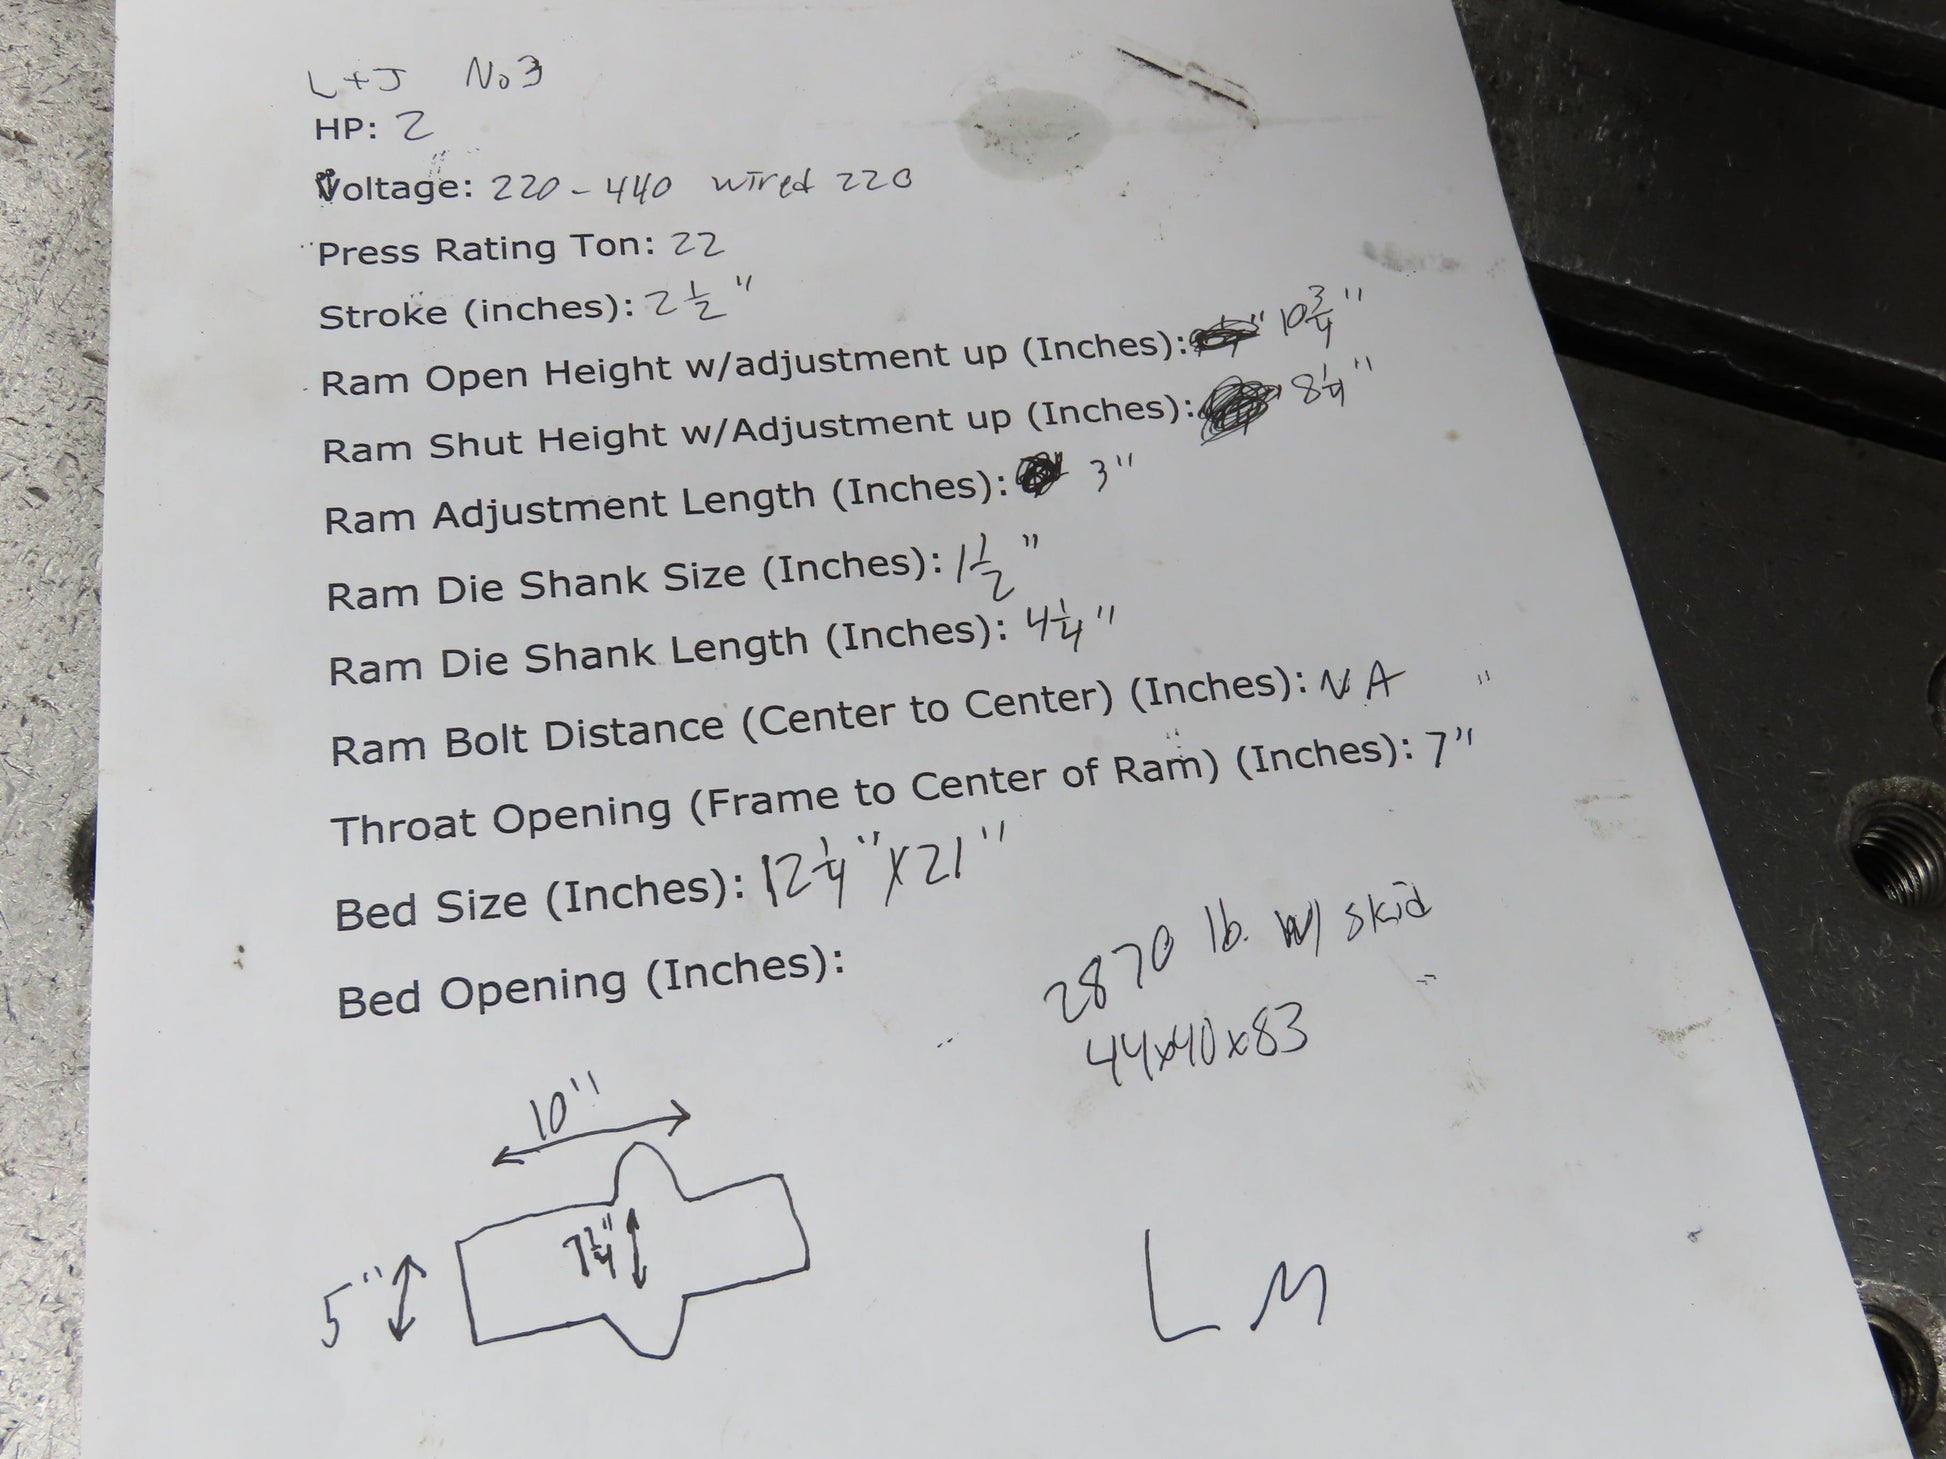 L+J No3
HP: 2
Voltage: 220-440 wired 220
Press Rating Ton: 22
Stroke (inches): 2 1/2"
Ram Open Height w/adjustment up (Inches): 10 3/4"
Ram Shut Height w/Adjustment up (Inches): 8 1/4"
Ram Adjustment Length (Inches): 3"
Ram Die Shank Size (Inches): 1 1/2"
Ram Die Shank Length (Inches): 4 1/4"
Ram Bolt Distance (Center to Center) (Inches): NA "
Throat Opening (Frame to Center of Ram) (Inches): 7"
Bed Size (Inches): 12 1/4" x 21"
Bed Opening (Inches):
2870 lb. w/ skid
44x40x83
10"
7 1/4"
5"
LM